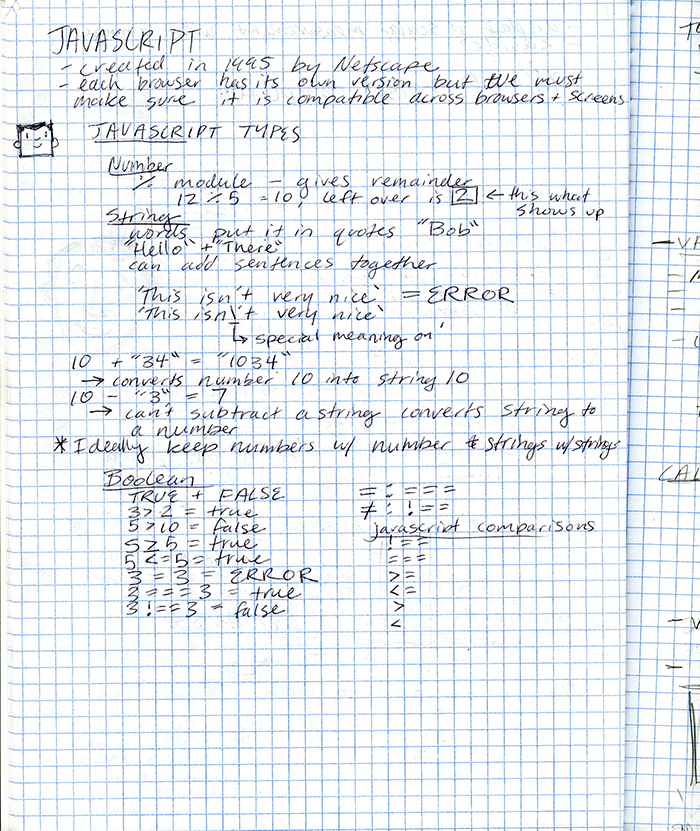 JAVASCRIPT
- created in 1995 by Netscape
- each browser has its own version but we must
make sure it is compatible across browsers + screens
JAVASCRIPT TYPES
Number
% module - gives remainder
12 % 5 = 10, left over is 2 ← this what
shows up
String
words, put it in quotes "Bob"
"Hello" + "There"
can add sentences together
'This isn't very nice' = ERROR
'This isn\'t very nice'
↳ special meaning on '
10 + "34" = "1034"
→ converts number 10 into string 10
10 - "3" = 7
→ can't subtract a string converts string to
a number
* Ideally keep numbers w/ number & strings w/strings
Boolean
TRUE + FALSE
3 > 2 = true
5 > 10 = false
5 ≥ 5 = true
5 <= 5 = true
3 = 3 = ERROR
3 === 3 = true
3 !== 3 = false
= : ===
≠ : !==
javascript comparisons
!==
===
>=
<=
>
<